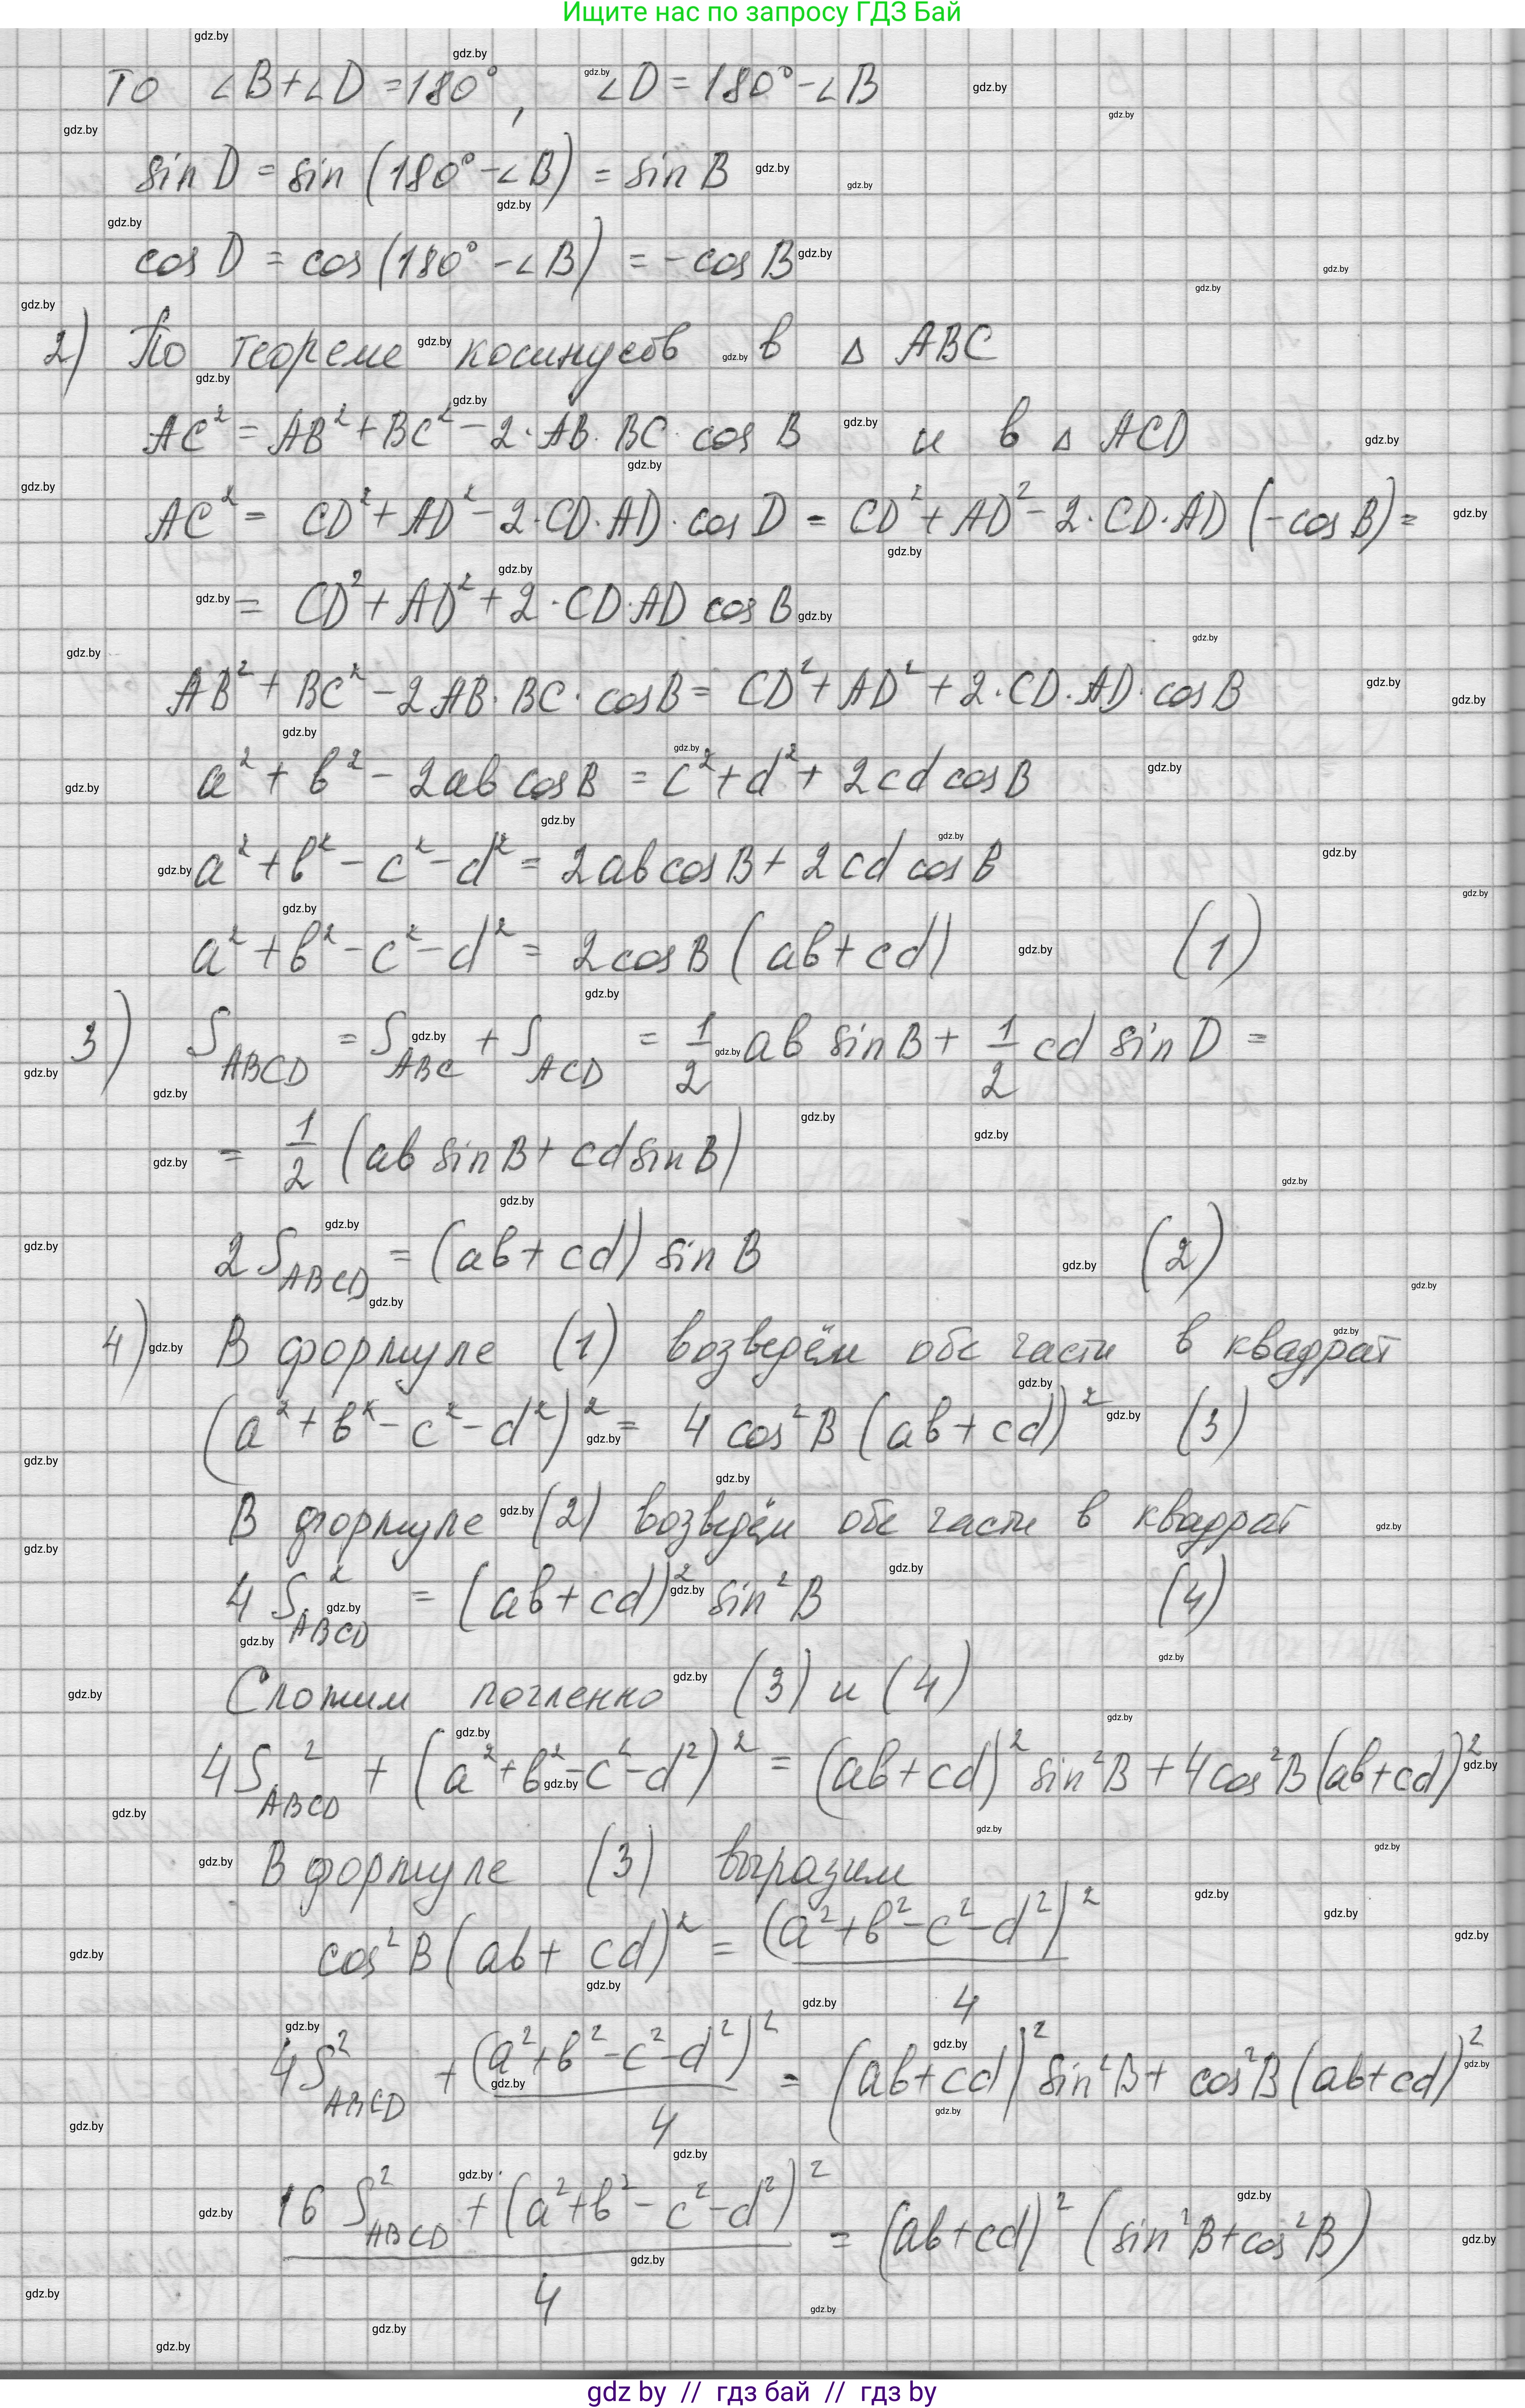 Ищите нас по запросу ГДЗ Бай
то ∠B+∠D =180°, ∠D = 180°-∠B
sin D = sin (180°-∠B) = sin B
cos D = cos (180° -∠B) = - cos B
2) По теореме косинусов в Δ ABC
AC² = AB² + BC² - 2·AB·BC·cos B и в Δ ACD
AC² = CD² + AD² - 2·CD·AD·cos D = CD² + AD² - 2·CD·AD (-cos B) =
= CD² + AD² + 2·CD·AD cos B
AB² + BC² - 2AB·BC·cos B = CD² + AD² + 2·CD·AD·cos B
a² + b² - 2ab cos B = c² + d² + 2cd cos B
a² + b² - c² - d² = 2ab cos B + 2cd cos B
a² + b² - c² - d² = 2cos B (ab + cd) (1)
3) S_ABCD = S_ABC + S_ACD = 1/2 ab sin B + 1/2 cd sin D =
= 1/2 (ab sin B + cd sin B)
2S_ABCD = (ab + cd) sin B (2)
4) В формуле (1) возведём обе части в квадрат
(a² + b² - c² - d²)² = 4 cos² B (ab + cd)² (3)
В формуле (2) возведём обе части в квадрат
4 S²_ABCD = (ab + cd)² sin² B (4)
Сложим почленно (3) и (4)
4S²_ABCD + (a² + b² - c² - d²)² = (ab + cd)² sin² B + 4cos² B (ab + cd)²
В формуле (3) выразим
cos² B (ab + cd)² = (a² + b² - c² - d²)² / 4
4S²_ABCD + (a² + b² - c² - d²)² / 4 = (ab + cd)² sin² B + cos² B (ab + cd)²
16 S²_ABCD + (a² + b² - c² - d²)² / 4 = (ab + cd)² (sin² B + cos² B)
gdz by // гдз бай // гдз by